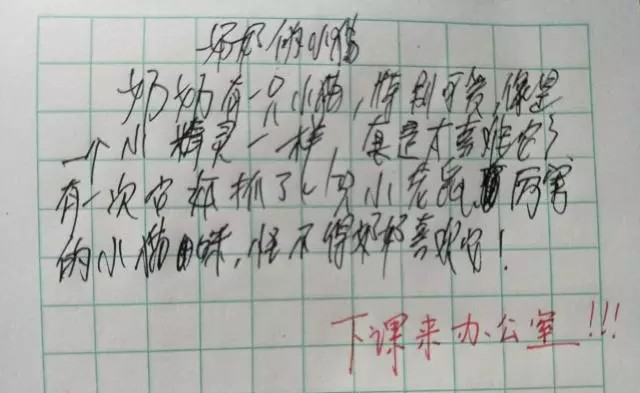 奶奶的小猫
奶奶有一只小猫,特别可爱,像是
一个小精灵一样,真是太喜欢它了
有一次它抓了小老鼠厉害
的小猫咪,怪不得奶奶喜欢它!
下课来办公室!!!